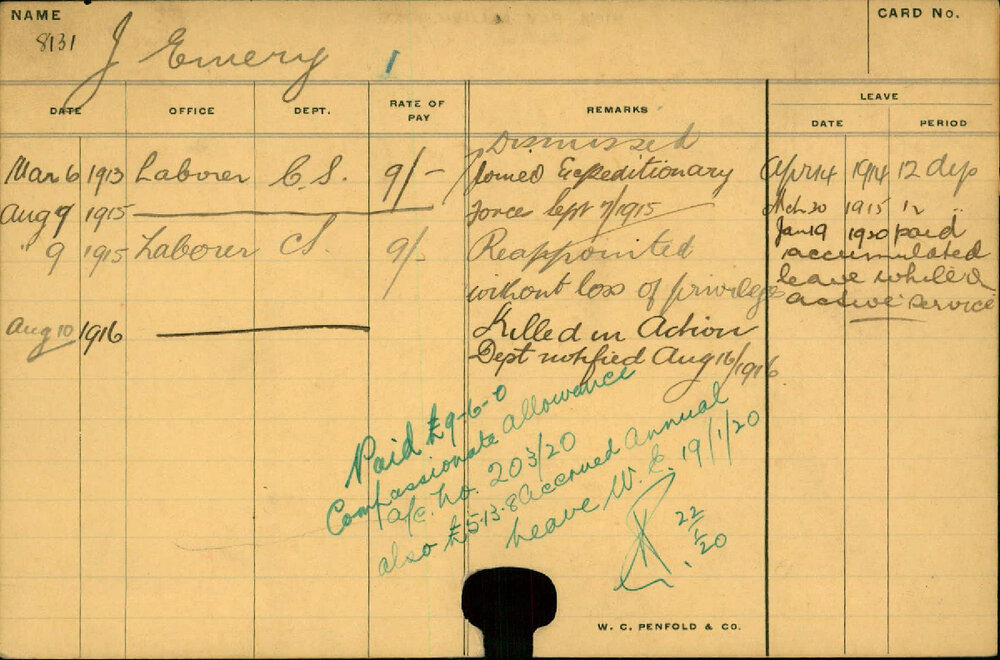 NAME
CARD No.
8131
J Emery
1
DATE OFFICE DEPT. RATE OF PAY REMARKS LEAVE
DATE PERIOD
Dismissed
Mar 6 1913 Laborer C.S. 9/- Joined Expeditionary Apr 14 1914 12 dys
Aug 9 1915 Force Sept 7/1915 Mch 30 1915 12 "
" 9 1915 Laborer CS. 9/- Reappointed Jan 19 1920 paid
accumulated
without loss of privilege leave while on
active service
Aug 10 1916 Killed in Action
Dept notified Aug 16/1916
Paid £9-6-0
Compassionate allowance
a/c. No. 203/20
also £5-13-8 accrued annual
leave W. E. 19/1/20
22/1/20
W. C. PENFOLD & CO.